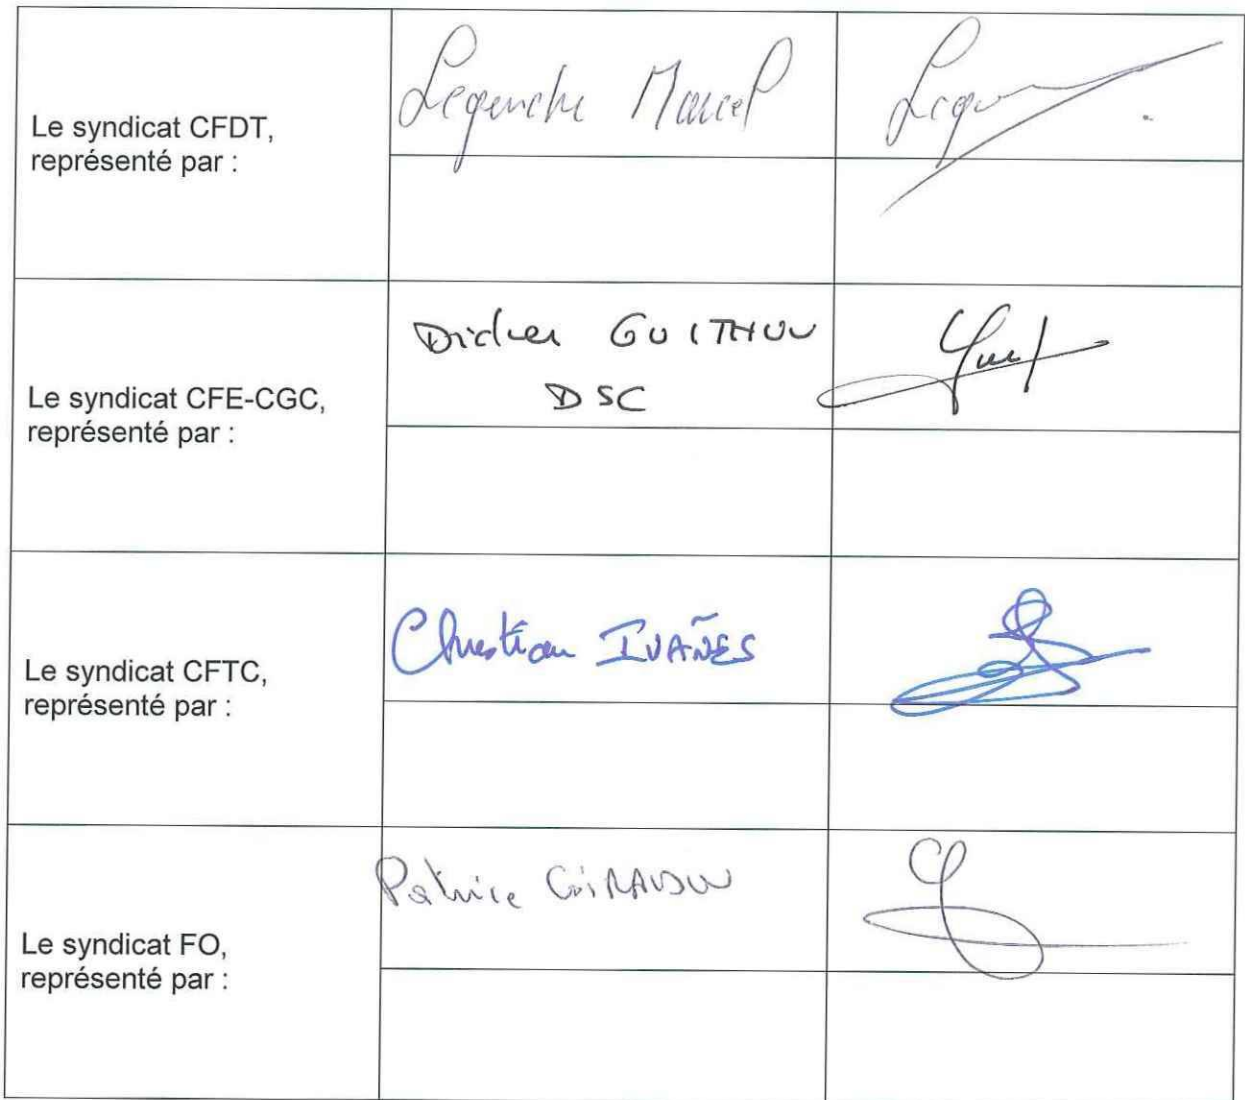 Le syndicat CFDT,
représenté par :
Marcel
Le syndicat CFE-CGC,
représenté par :
Didier GUITHON
DSC
Le syndicat CFTC,
représenté par :
Christian IVAÑES
Le syndicat FO,
représenté par :
Patrice GIRAUDON